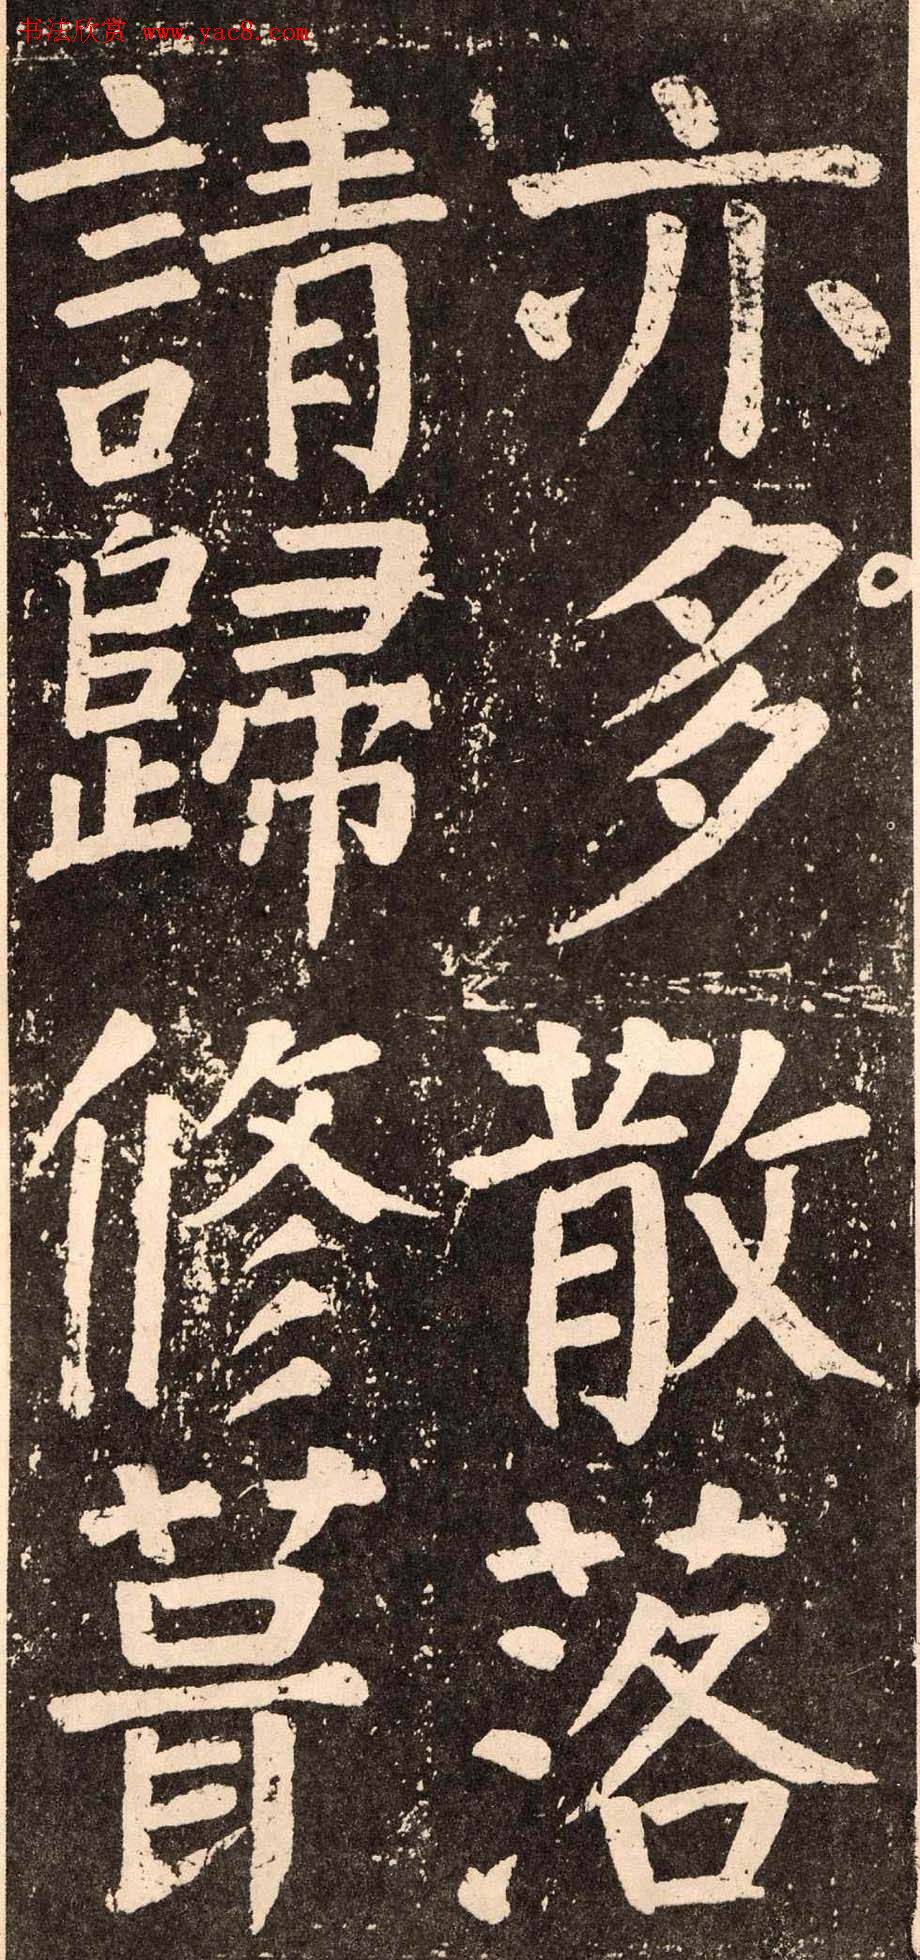 书法欣赏 www.yac8.com
亦多散落
請歸修葺